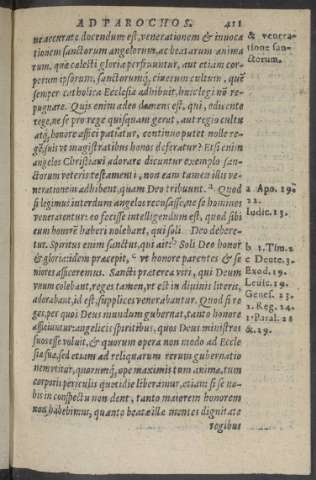 AD PAROCHOS. 411
ut accurate docendum est, venerationem & inuoca & venera-
tionem sanctorum angelorum, ac beatarum anima tione san-
rum, quæ cælesti gloria perfruuntur, aut etiam cor- ctorum.
porum ipsorum, sanctorumq́, cinerum cultum, quē
semper catholica Ecclesia adhibuit, huic legi nō re-
pugnare. Quis enim adeo demens est, qui, edicente
rege, ne se pro rege quisquam gerat, aut regio cultu
atq́, honore affici patiatur, continuo putet nolle re-
gē, suis vt magistratibus honos deferatur? Etsi enim
angelos Christiani adorare dicuntur exemplo san-
ctorum veteris testamenti, non eam tamen illis ve-
nerationem adhibent, quam Deo tribuunt. a Quod a Apo. 19.
si legimus interdum angelos recusasse, ne se homines 22.
venerarentur: eo fecisse intelligendum est, quod sibi Iudic. 13.
eum honorē haberi nolebant, qui soli Deo debere-
tur. Spiritus enim sanctus, qui ait: b Soli Deo honor b 1. Tim. 1
& gloria: idem præcepit, c vt honore parentes & se c Deute. 5.
niores afficeremus. Sancti præterea viri, qui Deum Exod. 19.
vnum colebant, reges tamen, vt est in diuinis literis, Leuit. 19.
adorabant, id est, supplices venerabantur. Quod si re Genes. 23.
ges, per quos Deus mundum gubernat, tanto honore 1. Reg. 24.
afficiuntur: angelicis spiritibus, quos Deus ministros 1. Paral. 28
suos esse voluit, & quorum opera non modo ad Eccle & 29.
siæ suæ, sed etiam ad reliquarum rerum gubernatio
nem vtitur, quorumq́, ope maximis tum animæ, tum
corporis periculis quotidie liberamur, etiam si se no-
bis in conspectu non dent, tanto maiorem honorem
non habebimus, quanto beatæ illæ mentes dignitate
regibus